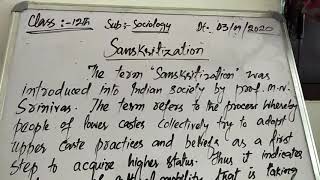 Class :- 12th Sub:- Sociology Dt:- 03/09/2020
Sanskritization
The term "Sanskritization" was
introduced into Indian Society by prof. M.N.
Srinivas. The term refers to the process whereby
people of lower castes collectively try to adopt
upper caste practices and beliefs, as a first
step to acquire higher status. Thus it indicates
that is taking